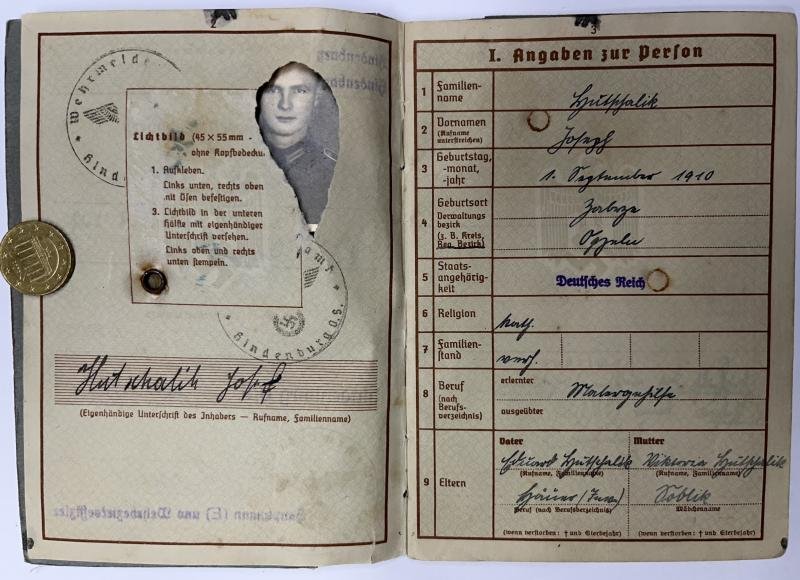 Wehrmelde
Hindenburg
Lichtbild (45 × 55 mm -
ohne Kopfbedecku
1. Aufkleben.
Links unten, rechts oben
mit Ösen befestigen.
3. Lichtbild in der unteren
Hälfte mit eigenhändiger
Unterschrift versehen.
Links oben und rechts
unten stempeln.
amt
Hindenburg O.S.
Hutschalik Josef
(Eigenhändige Unterschrift des Inhabers — Rufname, Familienname)
3
I. Angaben zur Person
1 Familien-
name
Hutschalik
2 Vornamen
(Rufname
unterstreichen)
Joseph
3 Geburtstag,
-monat,
-jahr
1. September 1910
4 Geburtsort
Verwaltungs-
bezirk
(z. B. Kreis,
Reg. Bezirk)
Zabrze
Oppeln
5 Staats-
angehörig-
keit
Deutsches Reich
6 Religion
kath.
7 Familien-
stand
verh.
8 Beruf
(nach
Berufs-
verzeichnis)
erlernter
Malergehilfe
ausgeübter
9 Eltern
Vater
Mutter
Eduard Hutschalik
Viktoria Hutschalik
(Rufname, Familienname)
(Rufname, Familienname)
Häuer
Soblik
Beruf (nach Berufsverzeichnis)
Mädchenname
(wenn verstorben: † und Sterbejahr)
(wenn verstorben: † und Sterbejahr)